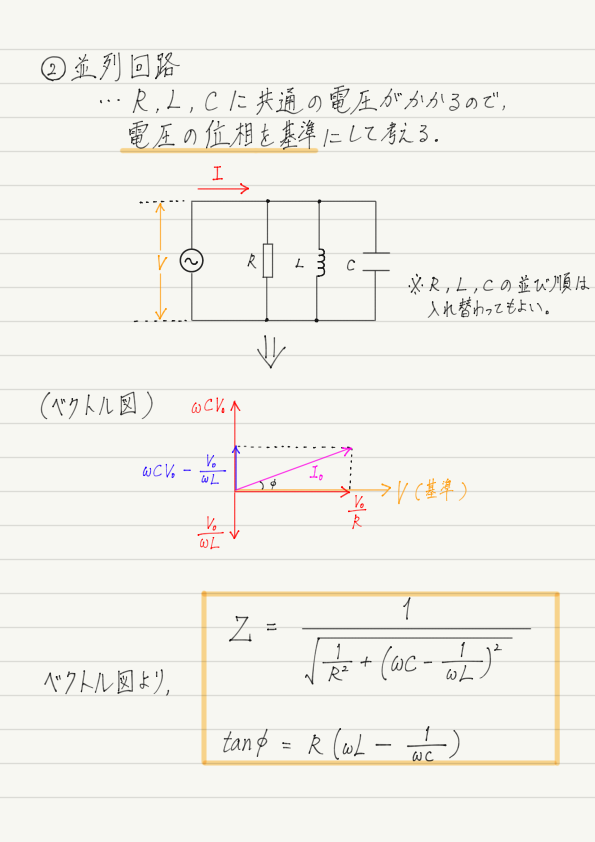 ② 並列回路
… R, L, C に共通の電圧がかかるので,
電圧の位相を基準にして考える.
I
V
R
L
C
※ R, L, C の並び順は
入れ替わってもよい。
(ベクトル図)
ωCV₀
ωCV₀ − V₀/ωL
I₀
φ
V (基準)
V₀/R
V₀/ωL
ベクトル図より,
Z = 1/√(1/R² + (ωC − 1/ωL)²)
tanφ = R(ωL − 1/ωC)